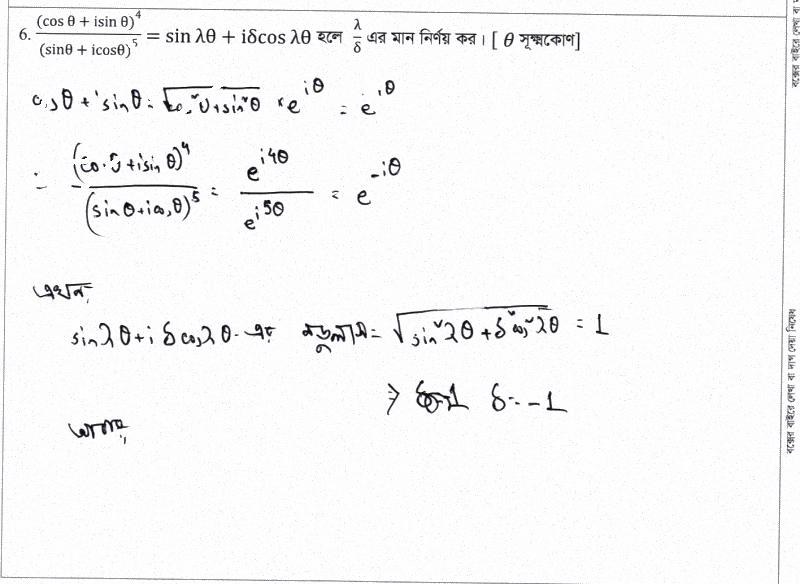 6. (cos θ + isin θ)^4 / (sinθ + icosθ)^5 = sin λθ + iδcos λθ হলে λ/δ এর মান নির্ণয় কর। [ θ সূক্ষ্মকোণ]
cosθ + isinθ = √(cos²θ + sin²θ) × e^(iθ) = e^(iθ)
∴ (cosθ + isinθ)^4 / (sinθ + icosθ)^5 = e^(i4θ) / e^(i5θ) = e^(-iθ)
এখন,
sinλθ + i δcosλθ এর মডুলাস = √(sin²λθ + δ²cos²λθ) = 1
⇒ δ = -1
আবার,
বক্সের বাইরে লেখা বা দাগ দেয়া নিষেধ